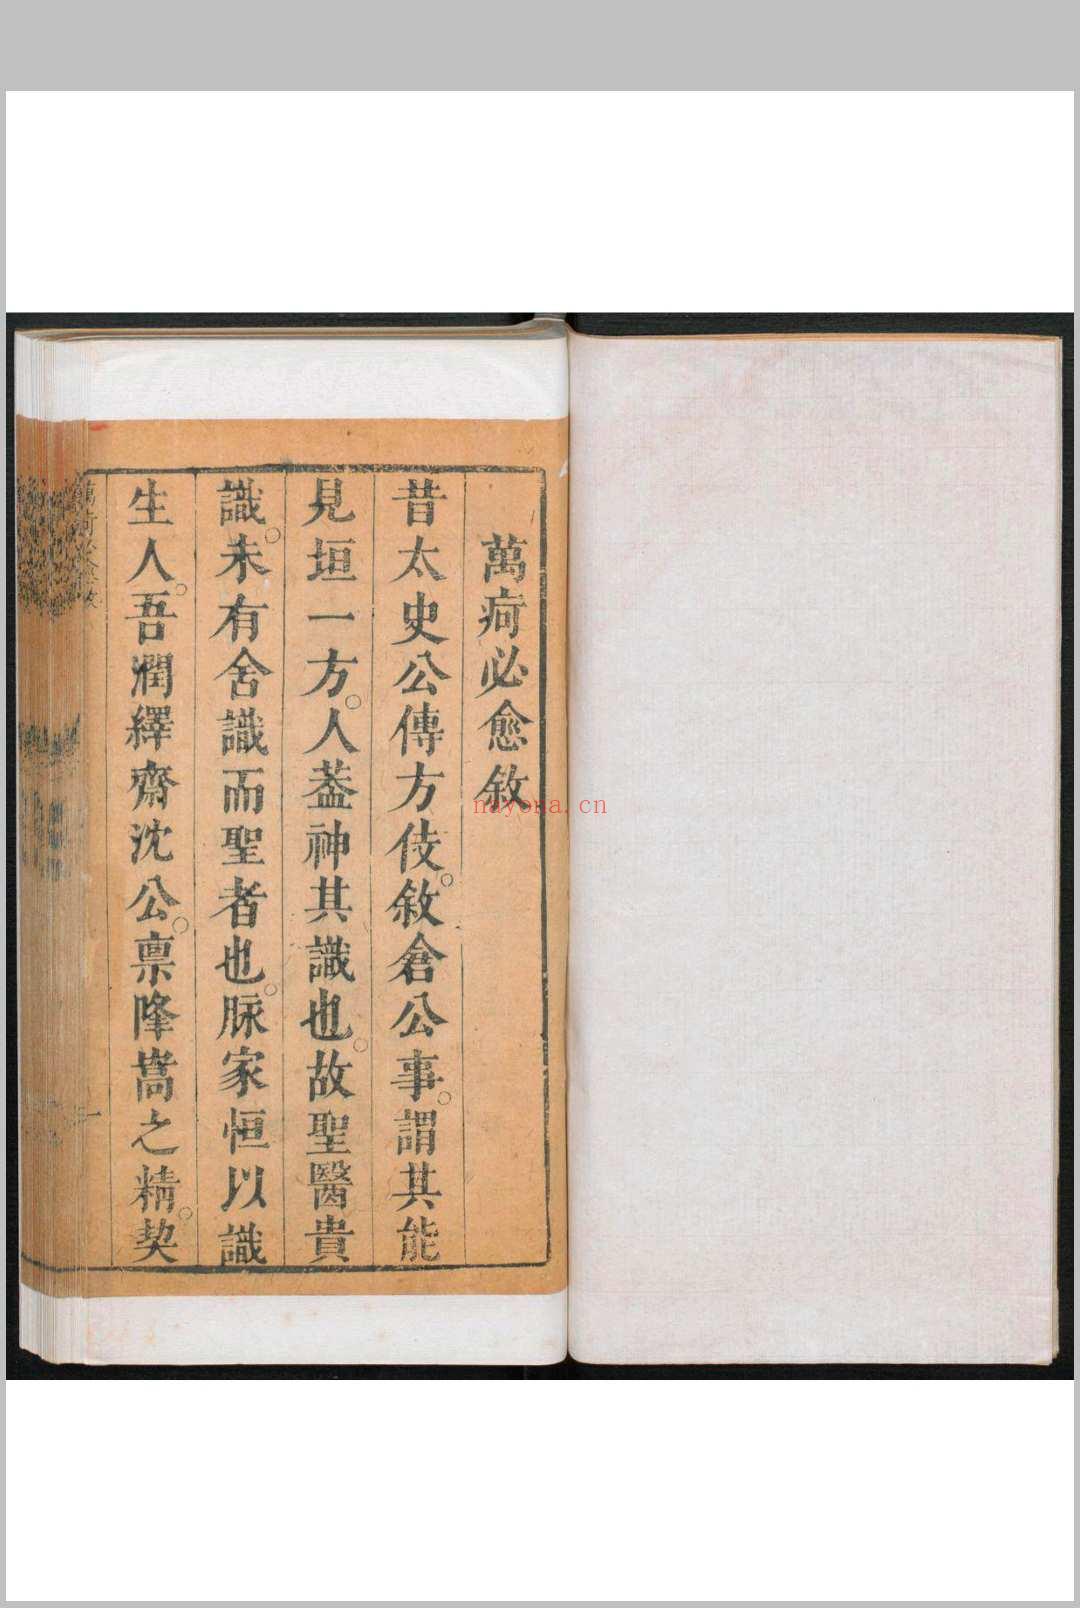 萬疴必愈敘
昔太史公傳方伎。敘倉公事。謂其能
見垣一方。人葢神其識也。故聖醫貴
識。未有舍識而聖者也。脉家恒以識
生人。吾潤繹齋沈公。稟隆嵩之精。契
萬疴必愈敘
一
nayona.cn